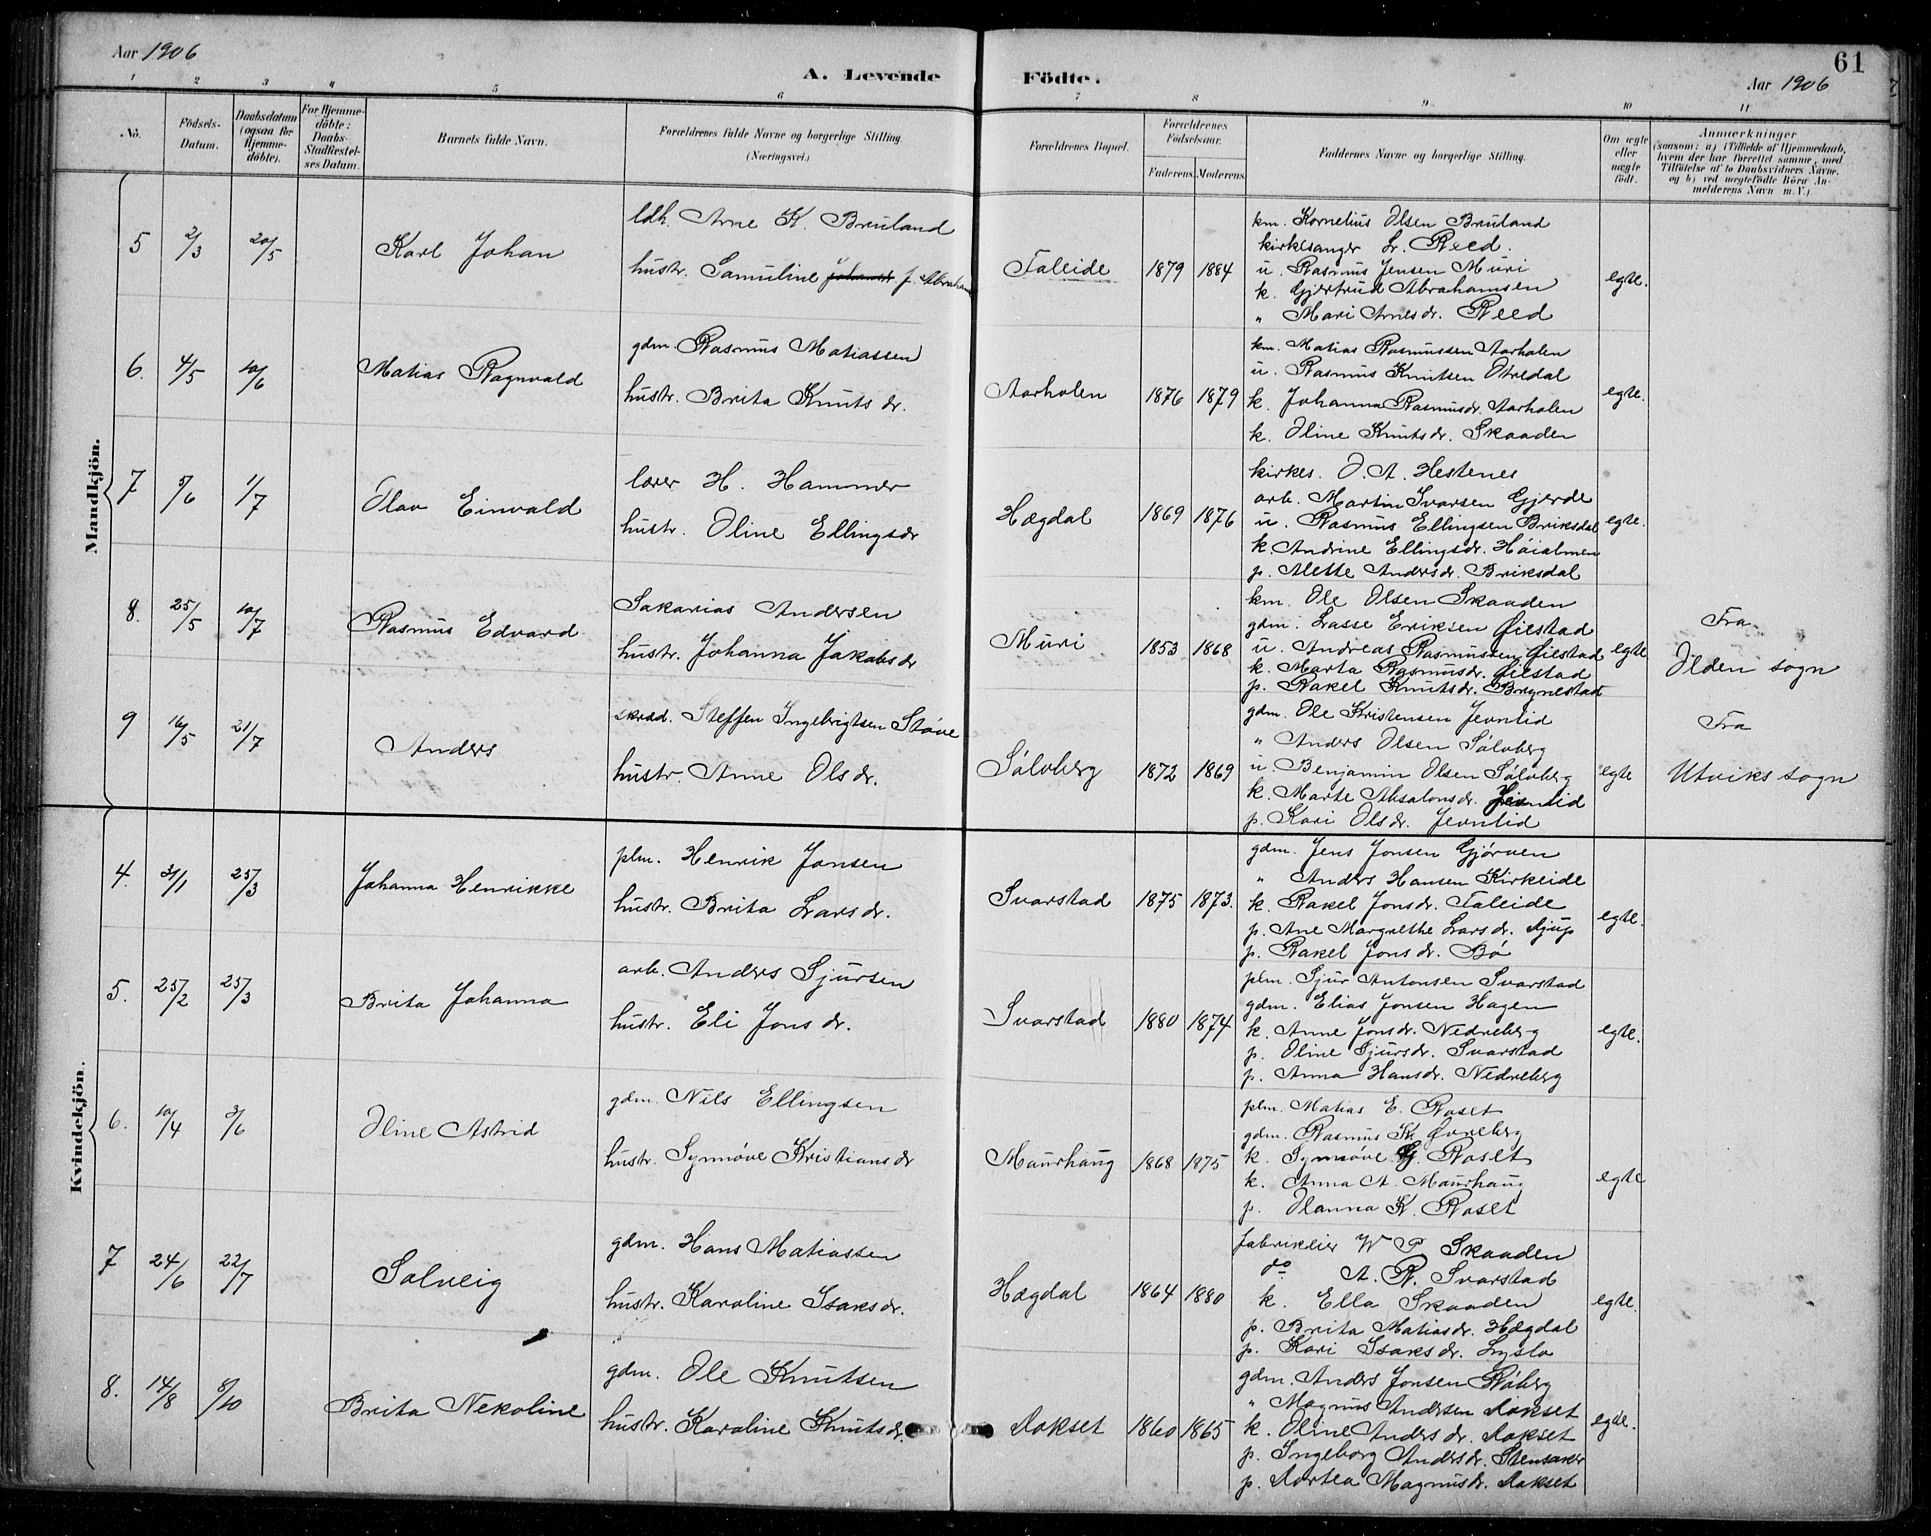 Aar 1906
A. Levende Födte.
61
Aar 1906
1 2 3 4 5 6 7 8 9 10 11
No.
Födsels-Datum.
Daabsdatum (ogsaa for Hjemme-döbte).
For Hjemme-döbte: Daabs-Stadfæstel-ses Datum.
Barnets fulde Navn.
Forældrenes fulde Navne og borgerlige Stilling. (Næringsvei.)
Forældrenes Bopæl.
Forældrenes Födselsaar.
Faderens. Moderens.
Faddernes Navne og borgerlige Stilling.
Om ægte eller uægte födt.
Anmærkninger
(saasom: a) i Tilfælde af Hjemmedaab, hvem der har forrettet samme, med Tilföielse af to Daabsvidners Navne, og b) ved uægtefödte Börn An-melderens Navn m. V.)
Mandkjön.
5 2/3 20/5 Karl Johan
ldh. Arne K. Bruland
hustr. Samuline Johannes f. Abrahams
Faleide 1879 1884
km. Kornelius Olsen Bruland
kirkesanger Reed.
u. Rasmus Jensen Muri
k. Gjertrud Abrahamsen
" Mari Arnesdr. Reed
egte.
6. 4/5 10/6 Matias Ragnvald
gdm. Rasmus Matiassen
hustr. Brita Knutsdr.
Aarholen 1876 1879
km. Matias Rasmussen Aarholen
u. Rasmus Knutsen Otredal
k. Johanna Rasmusdr. Aarholen
k. Oline Knutsdr. Skaaden
egte.
7 5/6 1/7 Olav Einvald
lærer H. Hammer
hustr. Oline Ellingsdr
Hægdal 1869 1876
kirkes. O. A. Hestenes
arb. Martin Ivarsen Gjerde
u. Rasmus Ellingsen Briksdal
k. Andrine Ellingsdr. Höialmen
p. Alette Andersdr. Briksdal
egte.
8. 25/5 10/7 Rasmus Edvard
Sakarias Andersen
hustr. Johanna Jakobsdr
Muri 1853 1868
km. Ole Olsen Skaaden
gdm. Lasse Eriksen Øilstad
u. Andreas Rasmussen Øilstad
k. Marta Rasmusdr. Øilstad
p. Rakel Knutsdr. Brynestad
egte
Fra
Olden sogn
9 16/5 21/7 Anders
skræd. Steffen Ingebrigtsen Støve
hustr. Anne Olsdr.
Sølvberg 1872 1869
gdm. Ole Kristensen Jevnlid
" Anders Olsen Sølvberg
u. Benjamin Olsen Sølvberg
k. Marte Absalonsdr. Jevnlid
p. Kari Olsdr. Jevnlid
egte
Fra
Utviks sogn
Kvindekjön.
4. 21/1 25/3 Johanna Henrikke
plm. Henrik Jonsen
hustr. Brita Larsdr.
Svarstad 1875 1873.
gdm. Jens Jonsen Gjørven
" Anders Hansen Kirkeide
k. Rakel Jonsdr. Faleide
p. Ane Margrethe Larsdr.
p. Rakel Jonsdr. Bø
egte.
5. 25/2 25/3 Brita Johanna
arb. Anders Sjursen
hustr. Eli Jonsdr.
Svarstad 1880 1874
plm. Sjur Antonsen Svarstad
gdm. Elias Jonsen Hagen
k. Anne Jonsdr. Nedreberg
p. Oline Sjursdr. Svarstad
p. Anna Hansdr. Nedreberg
egte.
6. 10/4 3/6 Oline Astrid
gdm. Nils Ellingsen
hustr. Synnöve Kristiansdr
Maurhaug 1868 1875
plm. Matias E. Roset
gdm. Rasmus K. Øvreberg
k. Synnöve G. Roset
k. Anna A. Maurhaug
p. Olanna K. Roset
egte
7 24/6 22/7 Solveig
gdm. Hans Matiassen
hustr. Karoline Isaksdr.
Hægdal 1864 1880
fabrikeier W P. Skaaden
do A. R. Svarstad
k. Ella Skaaden
p. Brita Matiasdr. Hægdal
p. Kari Isaksdr. Lyslo
egte.
8. 14/8 8/10 Brita Nekoline
gdm. Ole Knutsen
hustr. Karoline Knutsdr.
Aakset 1860 1865
gdm. Anders Jonsen Raberg
" Magnus Andersen Aakset
k. Oline Andersdr. Aakset
p. Ingeborg Andersdr. Stensaker
p. Dortea Magnusdr. Aakset
egte.